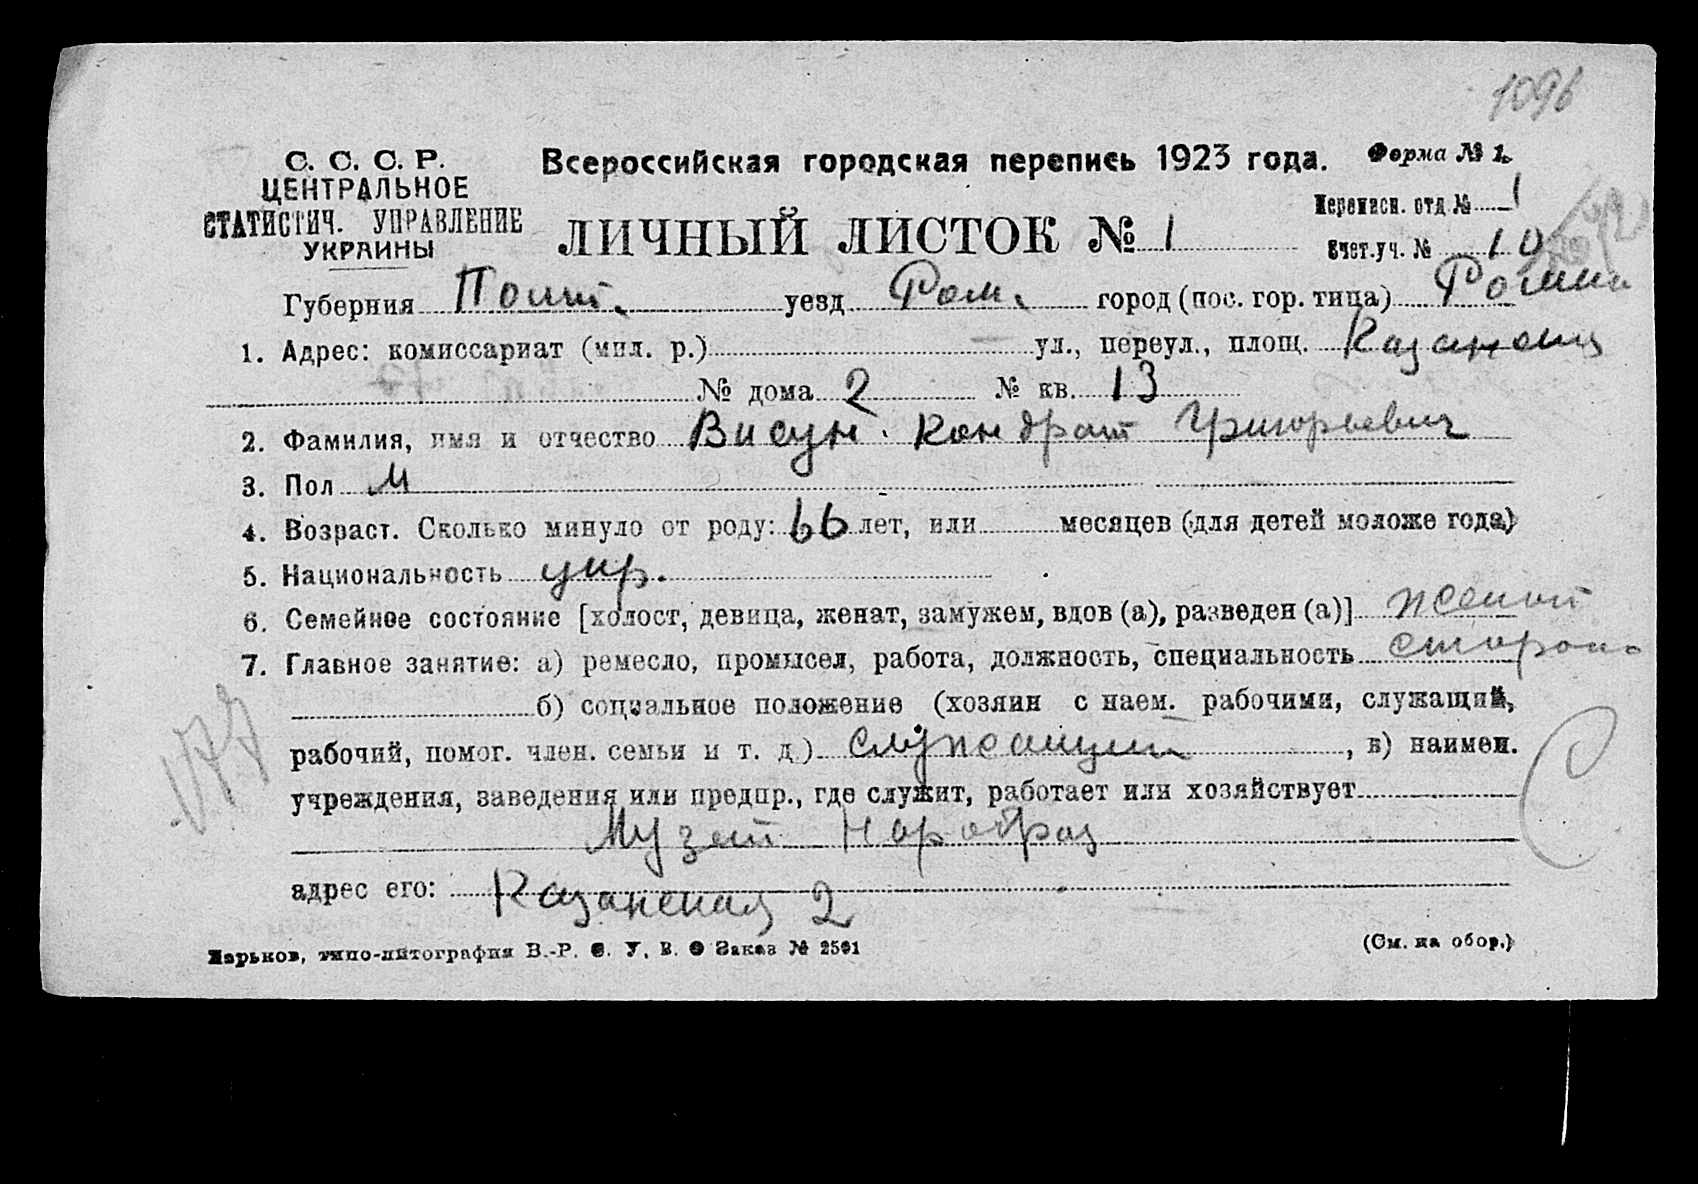 1096
С. С. С. Р.
ЦЕНТРАЛЬНОЕ
СТАТИСТИЧ. УПРАВЛЕНИЕ
УКРАИНЫ
Всероссийская городская перепись 1923 года.
Форма № 1.
ЛИЧНЫЙ ЛИСТОК № 1
Переписн. отд. № 1
Счет. уч. № 10
Губерния Полт. уезд Ром. город (пос. гор. типа) Ромны
1. Адрес: комиссариат (мил. р.) ул., переул., площ. Казанская
№ дома 2 № кв. 13
2. Фамилия, имя и отчество Висун. Кондрат Григорьевич
3. Пол М
4. Возраст. Сколько минуло от роду: 66 лет, или месяцев (для детей моложе года)
5. Национальность укр.
6. Семейное состояние [холост, девица, женат, замужем, вдов (а), разведен (а)] женат
7. Главное занятие: а) ремесло, промысел, работа, должность, специальность сторож
б) социальное положение (хозяин с наем. рабочими, служащий,
рабочий, помог. член. семьи и т. д.) служащий, в) наимен.
учреждения, заведения или предпр., где служит, работает или хозяйствует
Музей Наробраз
адрес его: Казанская 2
177
С
Харьков, типо-литография В.-Р. С. У. В. О Заказ № 2501
(См. на обор.)